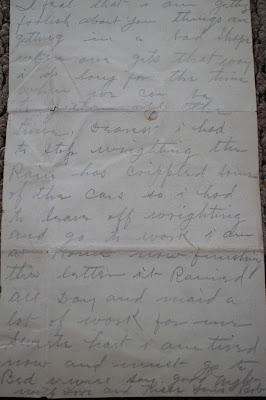 I feel that is am getting
foolish about you things are
getting in a bad shape
when one gits that way
i do long for the time
when you can be
time, Dearest i had
to stop wrighting the
Rain has crippled some
of the cars so i had
to leave off wrighting
and go to work i am
at Home now finishing
this letter it Rained
all Day and maid a
lot of work for me
Sweete hart i am tired
now and must go to
Bed
with love and